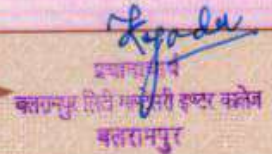 Kyadu
प्रधानाचार्य
बलरामपुर सिटी मान्टेसरी इण्टर कालेज
बलरामपुर